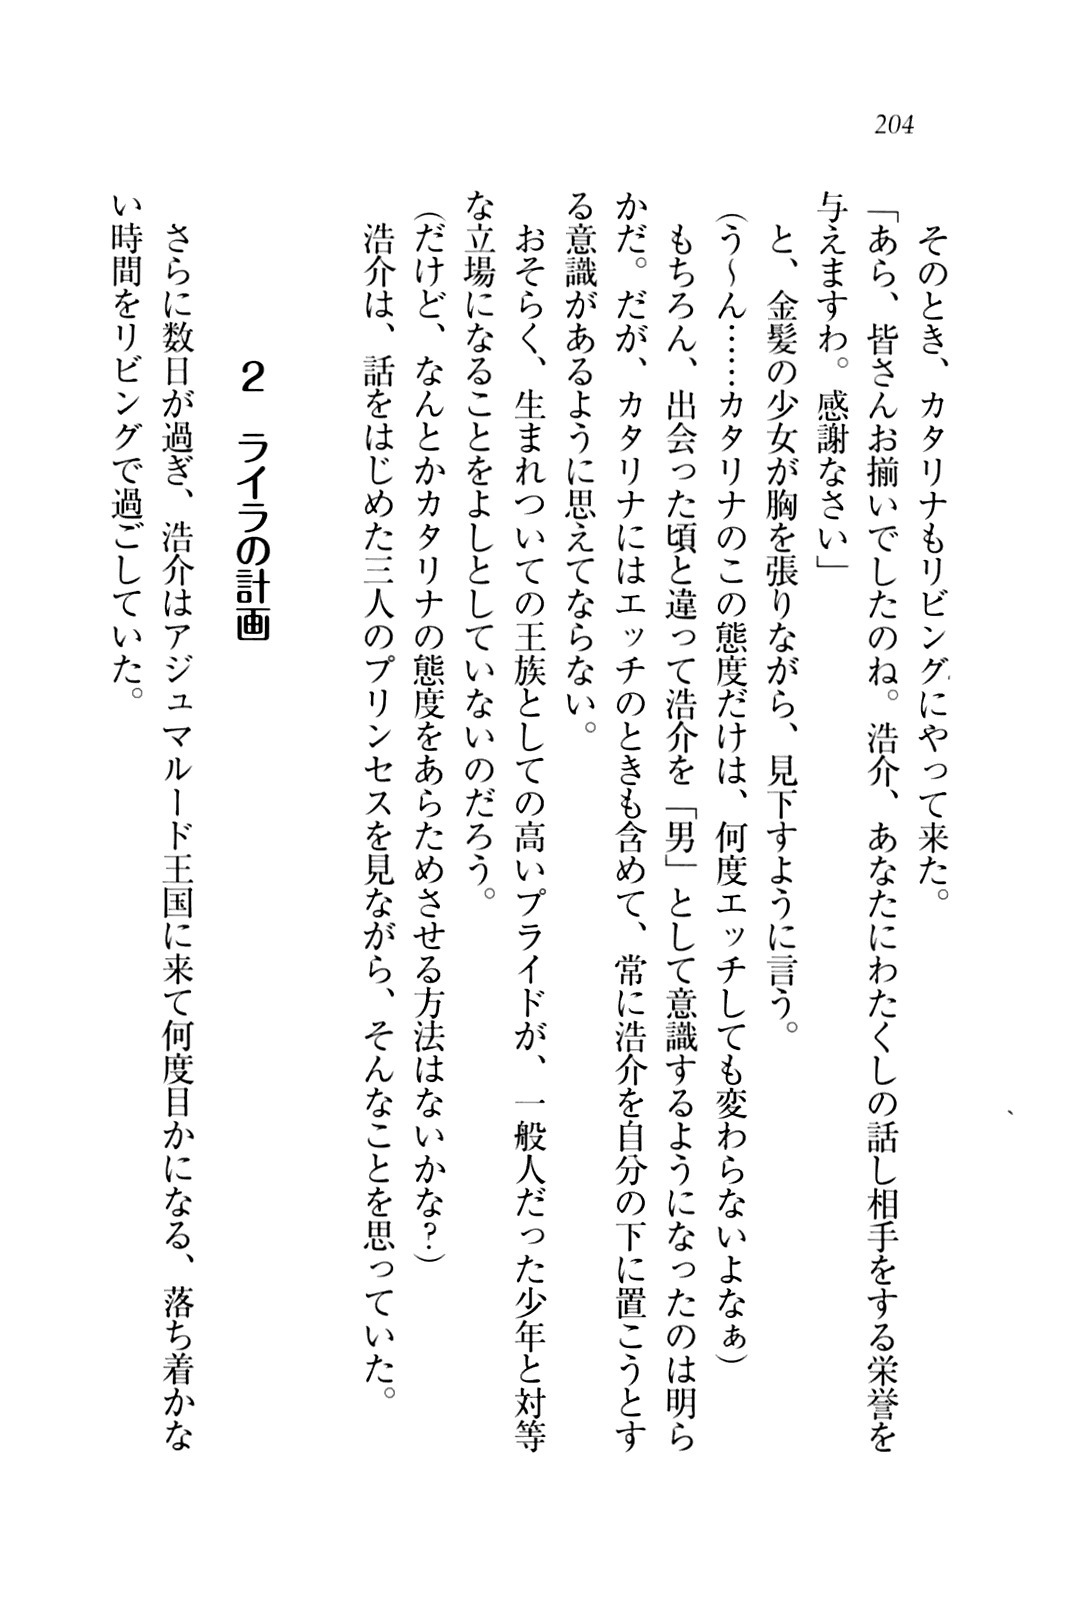 204
そのとき、カタリナもリビングにやって来た。
「あら、皆さんお揃いでしたのね。浩介、あなたにわたくしの話し相手をする栄誉を
与えますわ。感謝なさい」
と、金髪の少女が胸を張りながら、見下すように言う。
（う～ん……カタリナのこの態度だけは、何度エッチしても変わらないよなぁ）
もちろん、出会った頃と違って浩介を「男」として意識するようになったのは明ら
かだ。だが、カタリナにはエッチのときも含めて、常に浩介を自分の下に置こうとす
る意識があるように思えてならない。
おそらく、生まれついての王族としての高いプライドが、一般人だった少年と対等
な立場になることをよしとしていないのだろう。
（だけど、なんとかカタリナの態度をあらためさせる方法はないかな？）
浩介は、話をはじめた三人のプリンセスを見ながら、そんなことを思っていた。
2 ライラの計画
さらに数日が過ぎ、浩介はアジュマルード王国に来て何度目かになる、落ち着かな
い時間をリビングで過ごしていた。